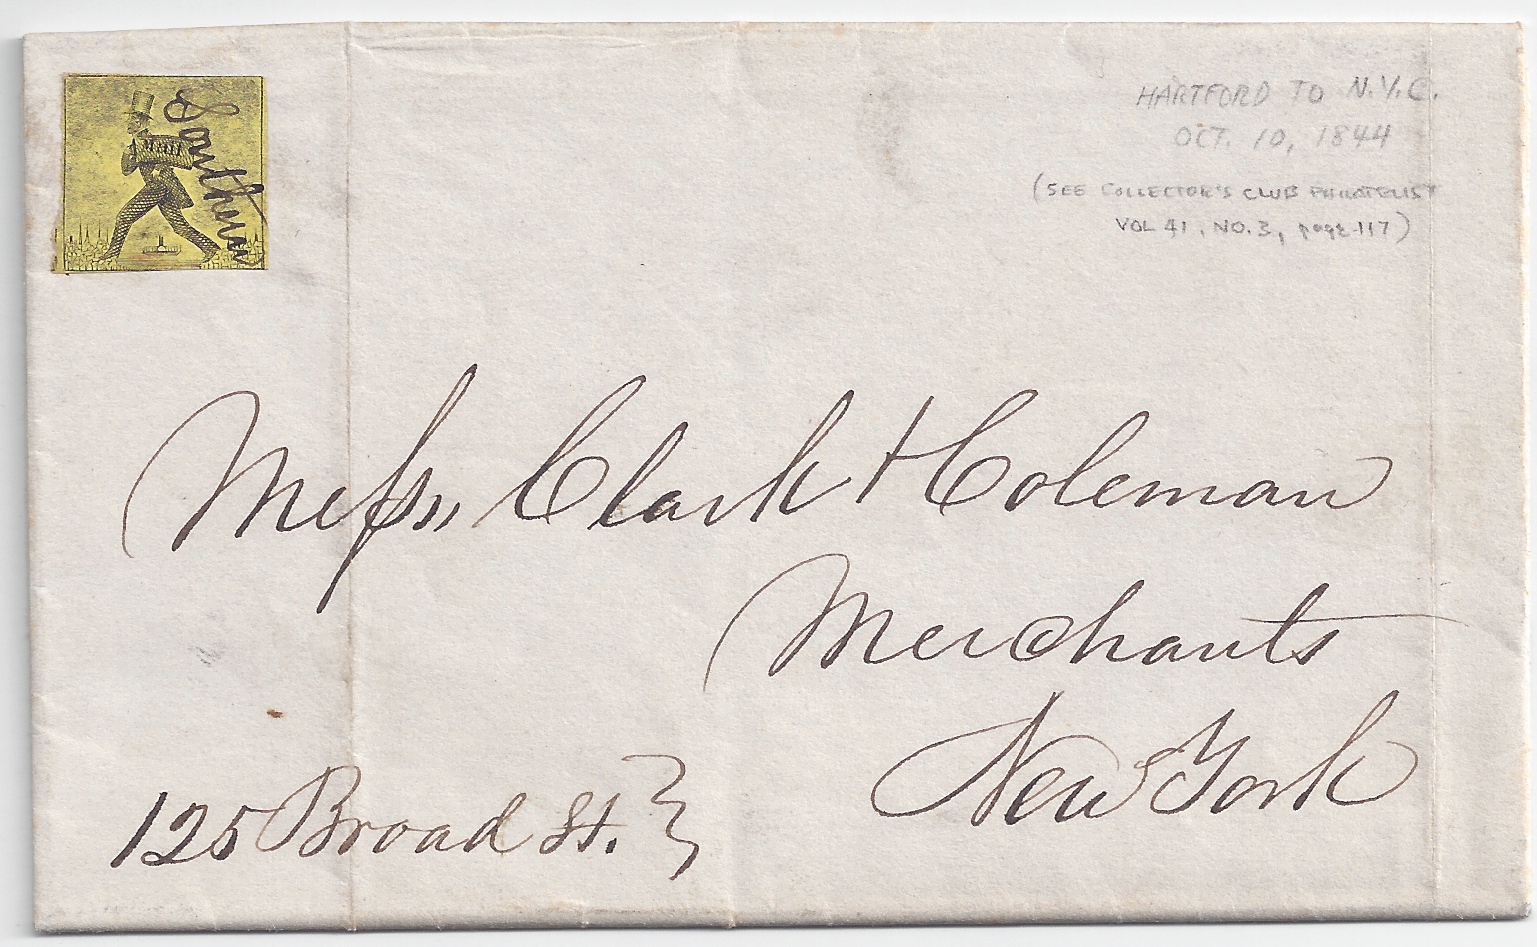 Southern
MAIL
HARTFORD TO N.Y.C.
OCT. 10, 1844
(SEE COLLECTOR'S CLUB PHILATELIST
VOL 41, NO. 3, page 117)
Messrs Clark & Coleman
Merchants
New York
125 Broad St.